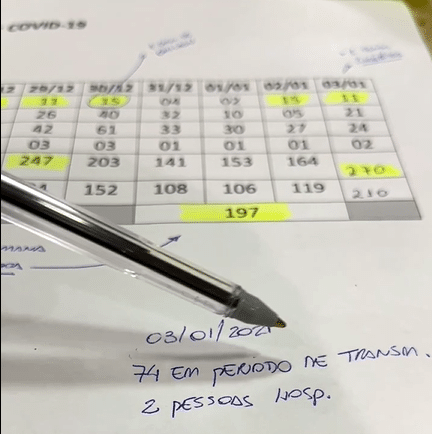 COVID-19
29/12 30/12 31/12 01/01 02/01 03/01
11 15 04 02 15 11
26 40 32 10 05 21
42 61 33 30 27 24
03 03 01 01 01 02
247 203 141 153 164 270
152 108 106 119 210
197
03/01/2021
74 EM PERIODO DE TRANSM.
2 PESSOAS HOSP.